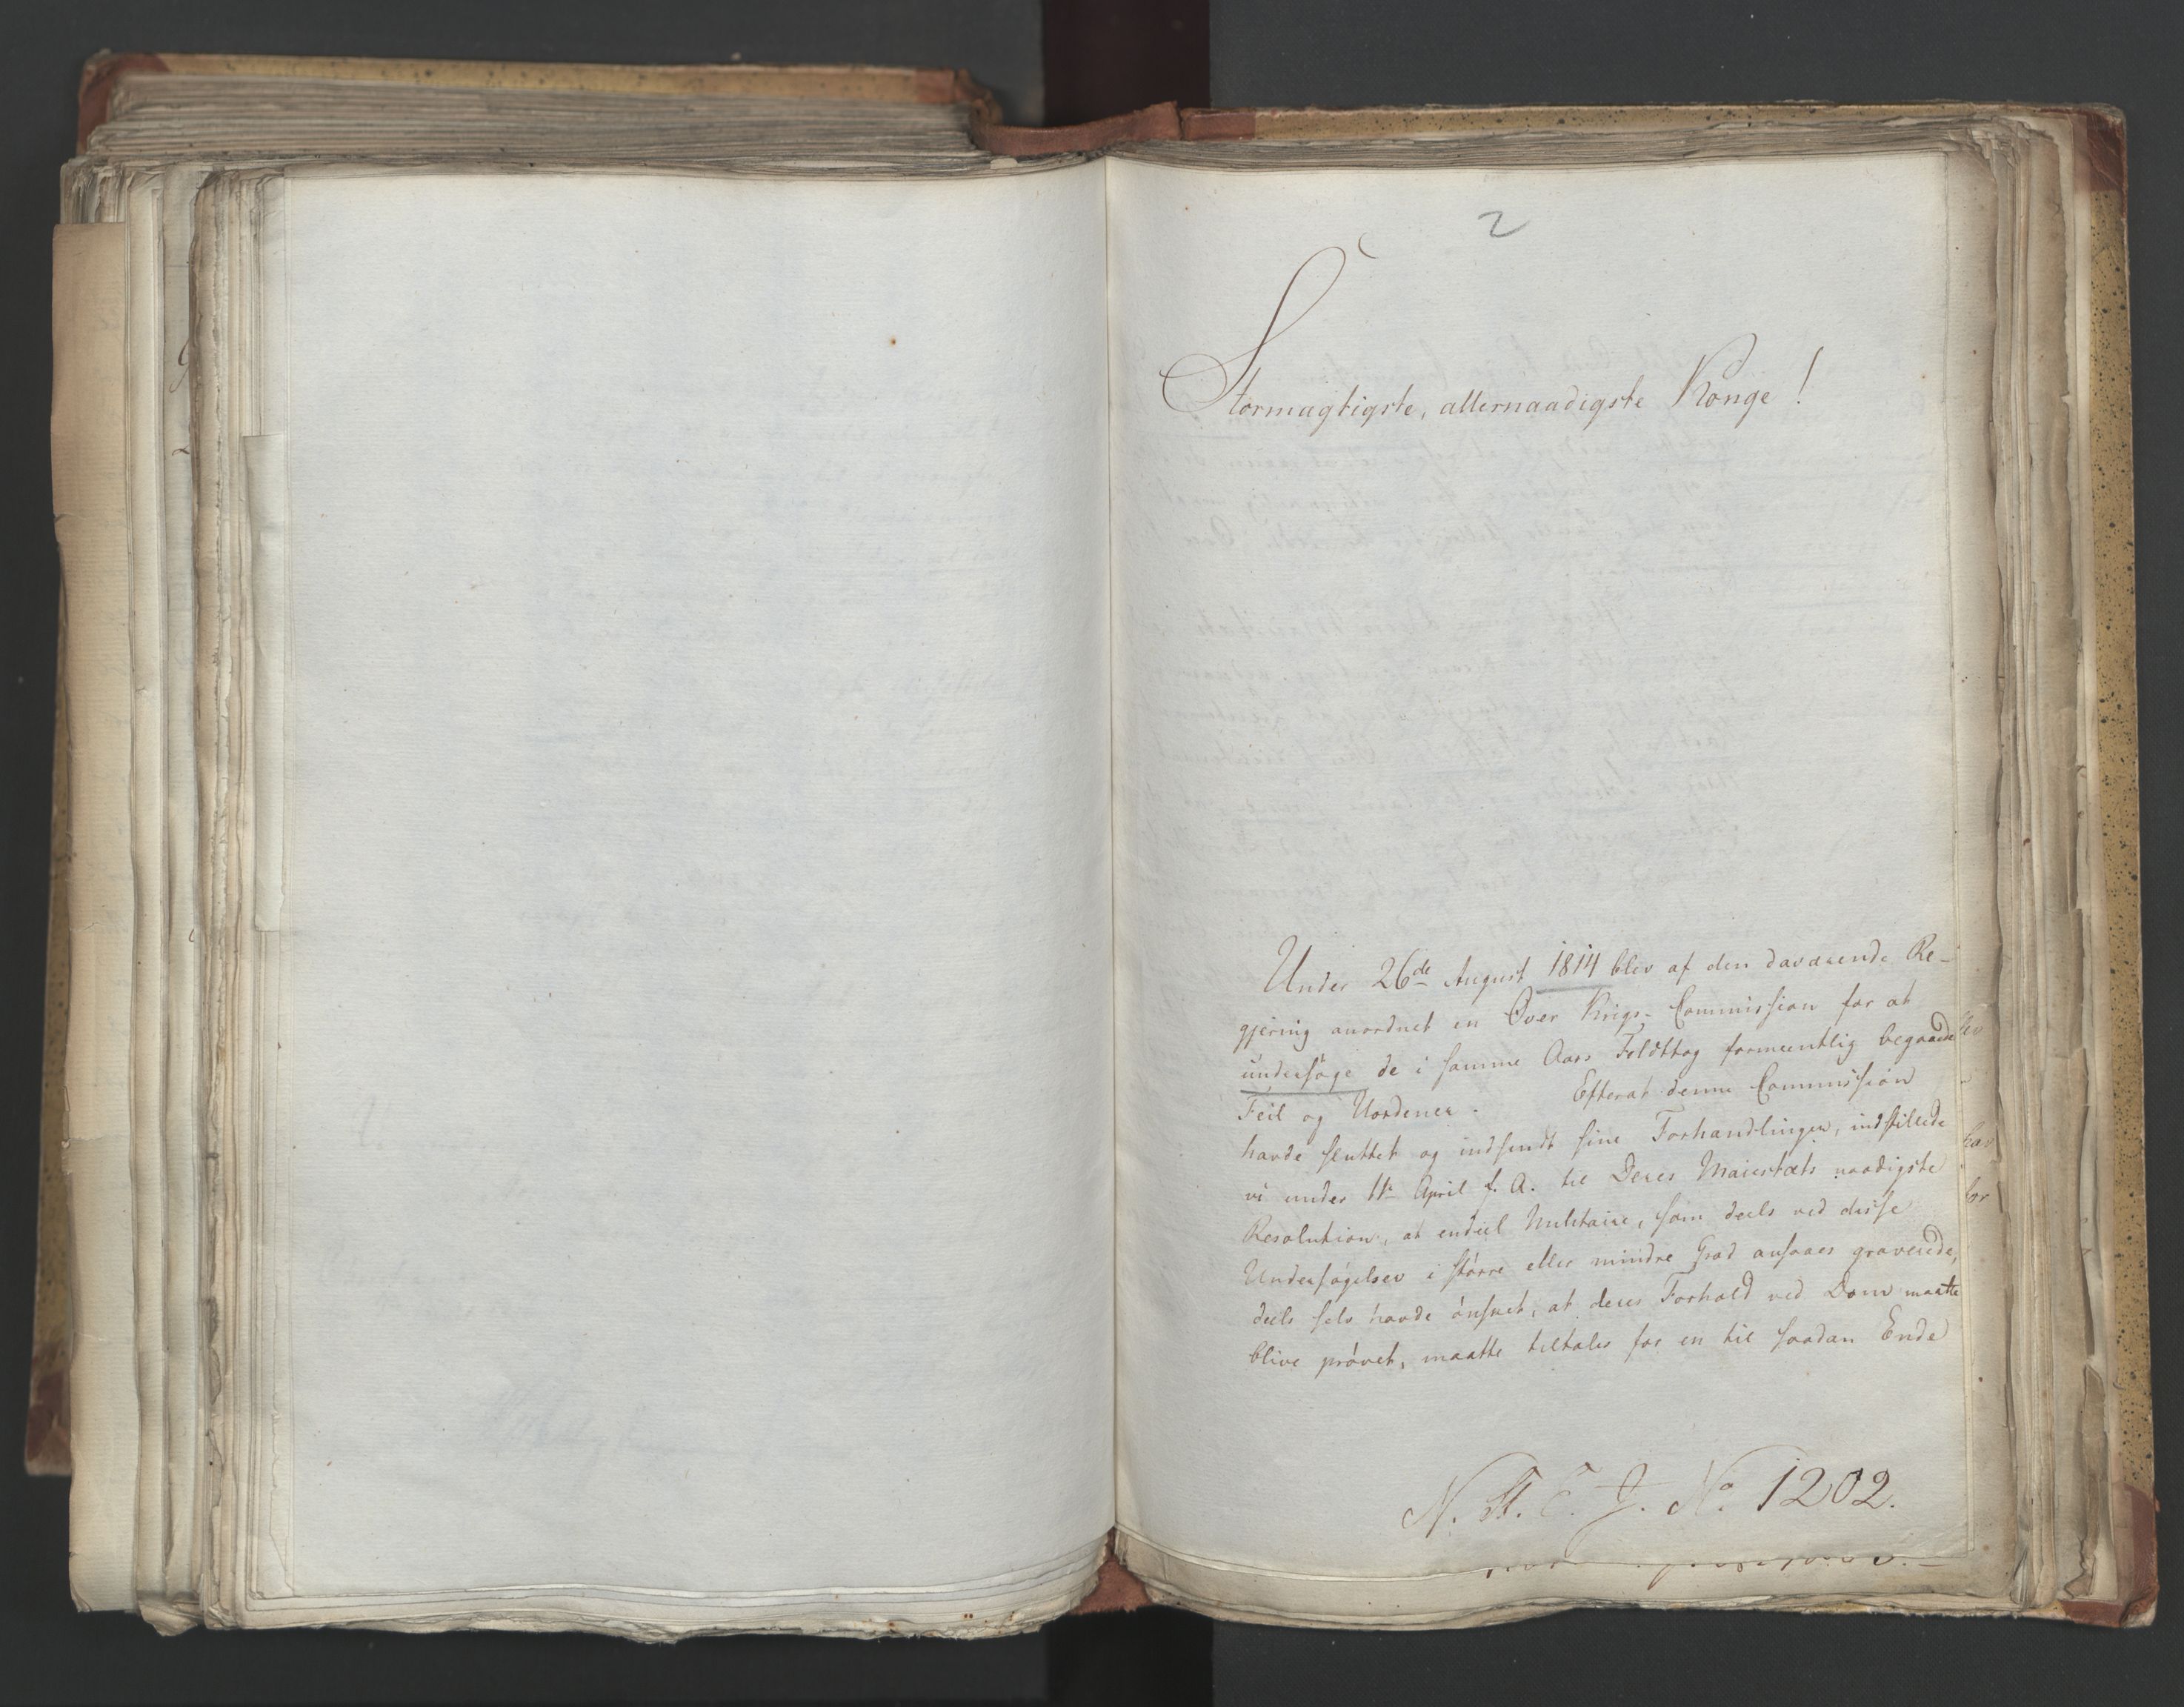 2
Stormægtigste, allernaadigste Konge!
Under 26de August 1814 blev af den daværende Re-
gjering anordnet en Over Krigs-Commission for at
undersøge de i samme Aars Feldttog formeentlig begaaede
Feil og Uordener. Efterat denne Commission
havde sluttet og indsendt sine Forhandlinger, indstillede
vi under 11te April f. A. til Deres Majestæts naadigste
Resolution, at endeel Militaire, som deels ved disse
Undersøgelser i større eller mindre Grad ansaaes graverede,
deels selv havde ønsket, at deres Forhold ved Dom maatte
blive prøvet, maatte tiltales for en til saadan Ende
har
for
N. St. E. J. No 1202.